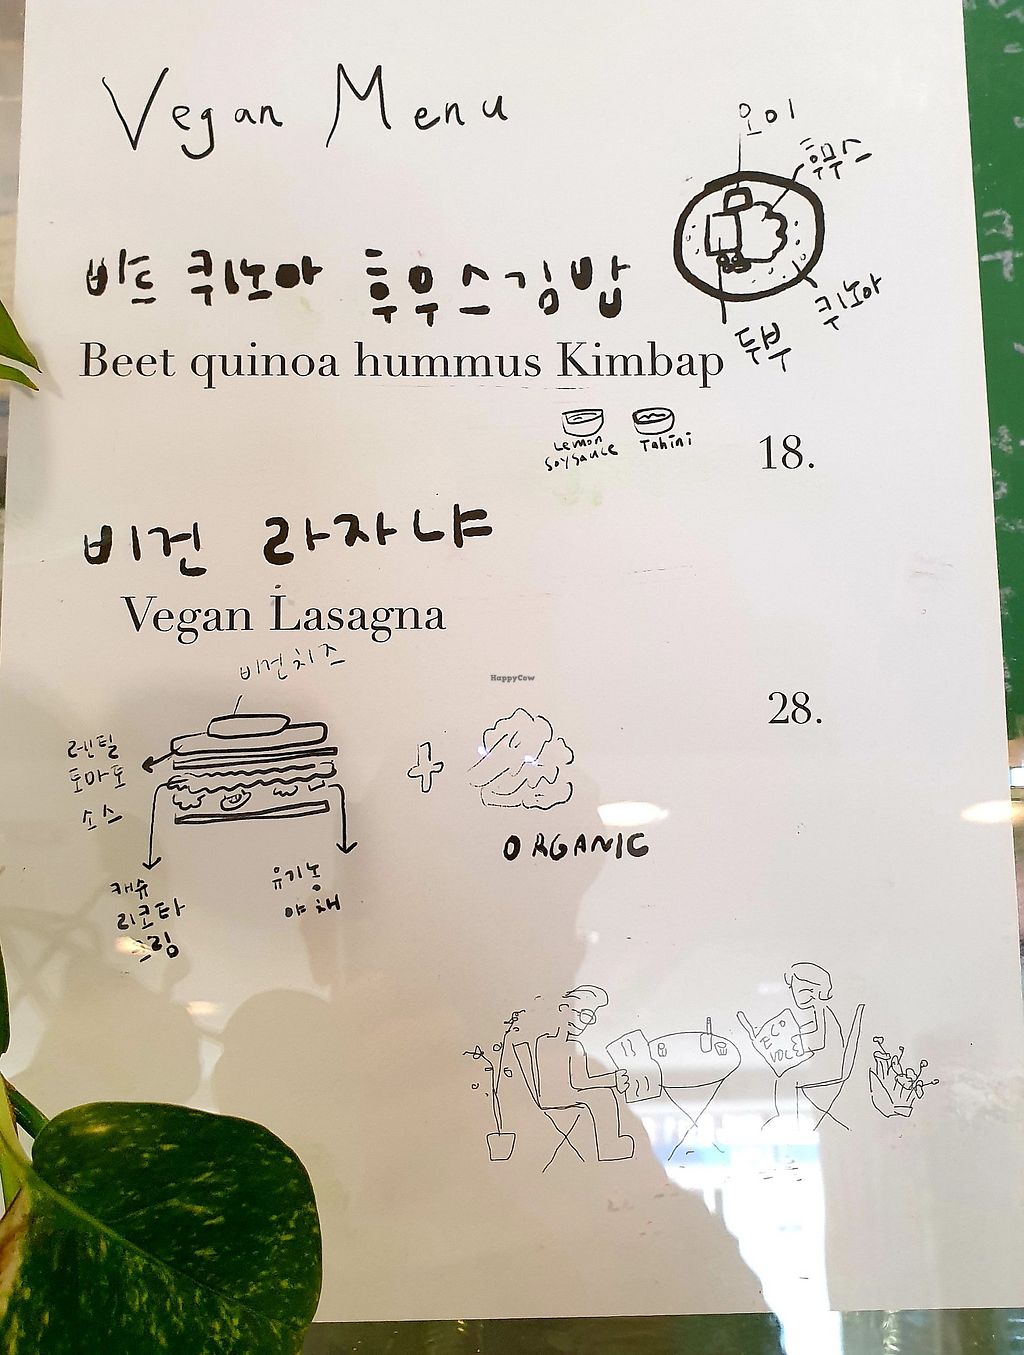 Vegan Menu
오이
후무스
비트 퀴노아 후무스 김밥
퀴노아
두부
Beet quinoa hummus Kimbap
Lemon
soysauce
Tahini
18.
비건 라자냐
Vegan Lasagna
비건치즈
HappyCow
28.
렌틸
토마토
소스
ORGANIC
캐슈
리코타
크림
유기농
야채
ECO
VOL